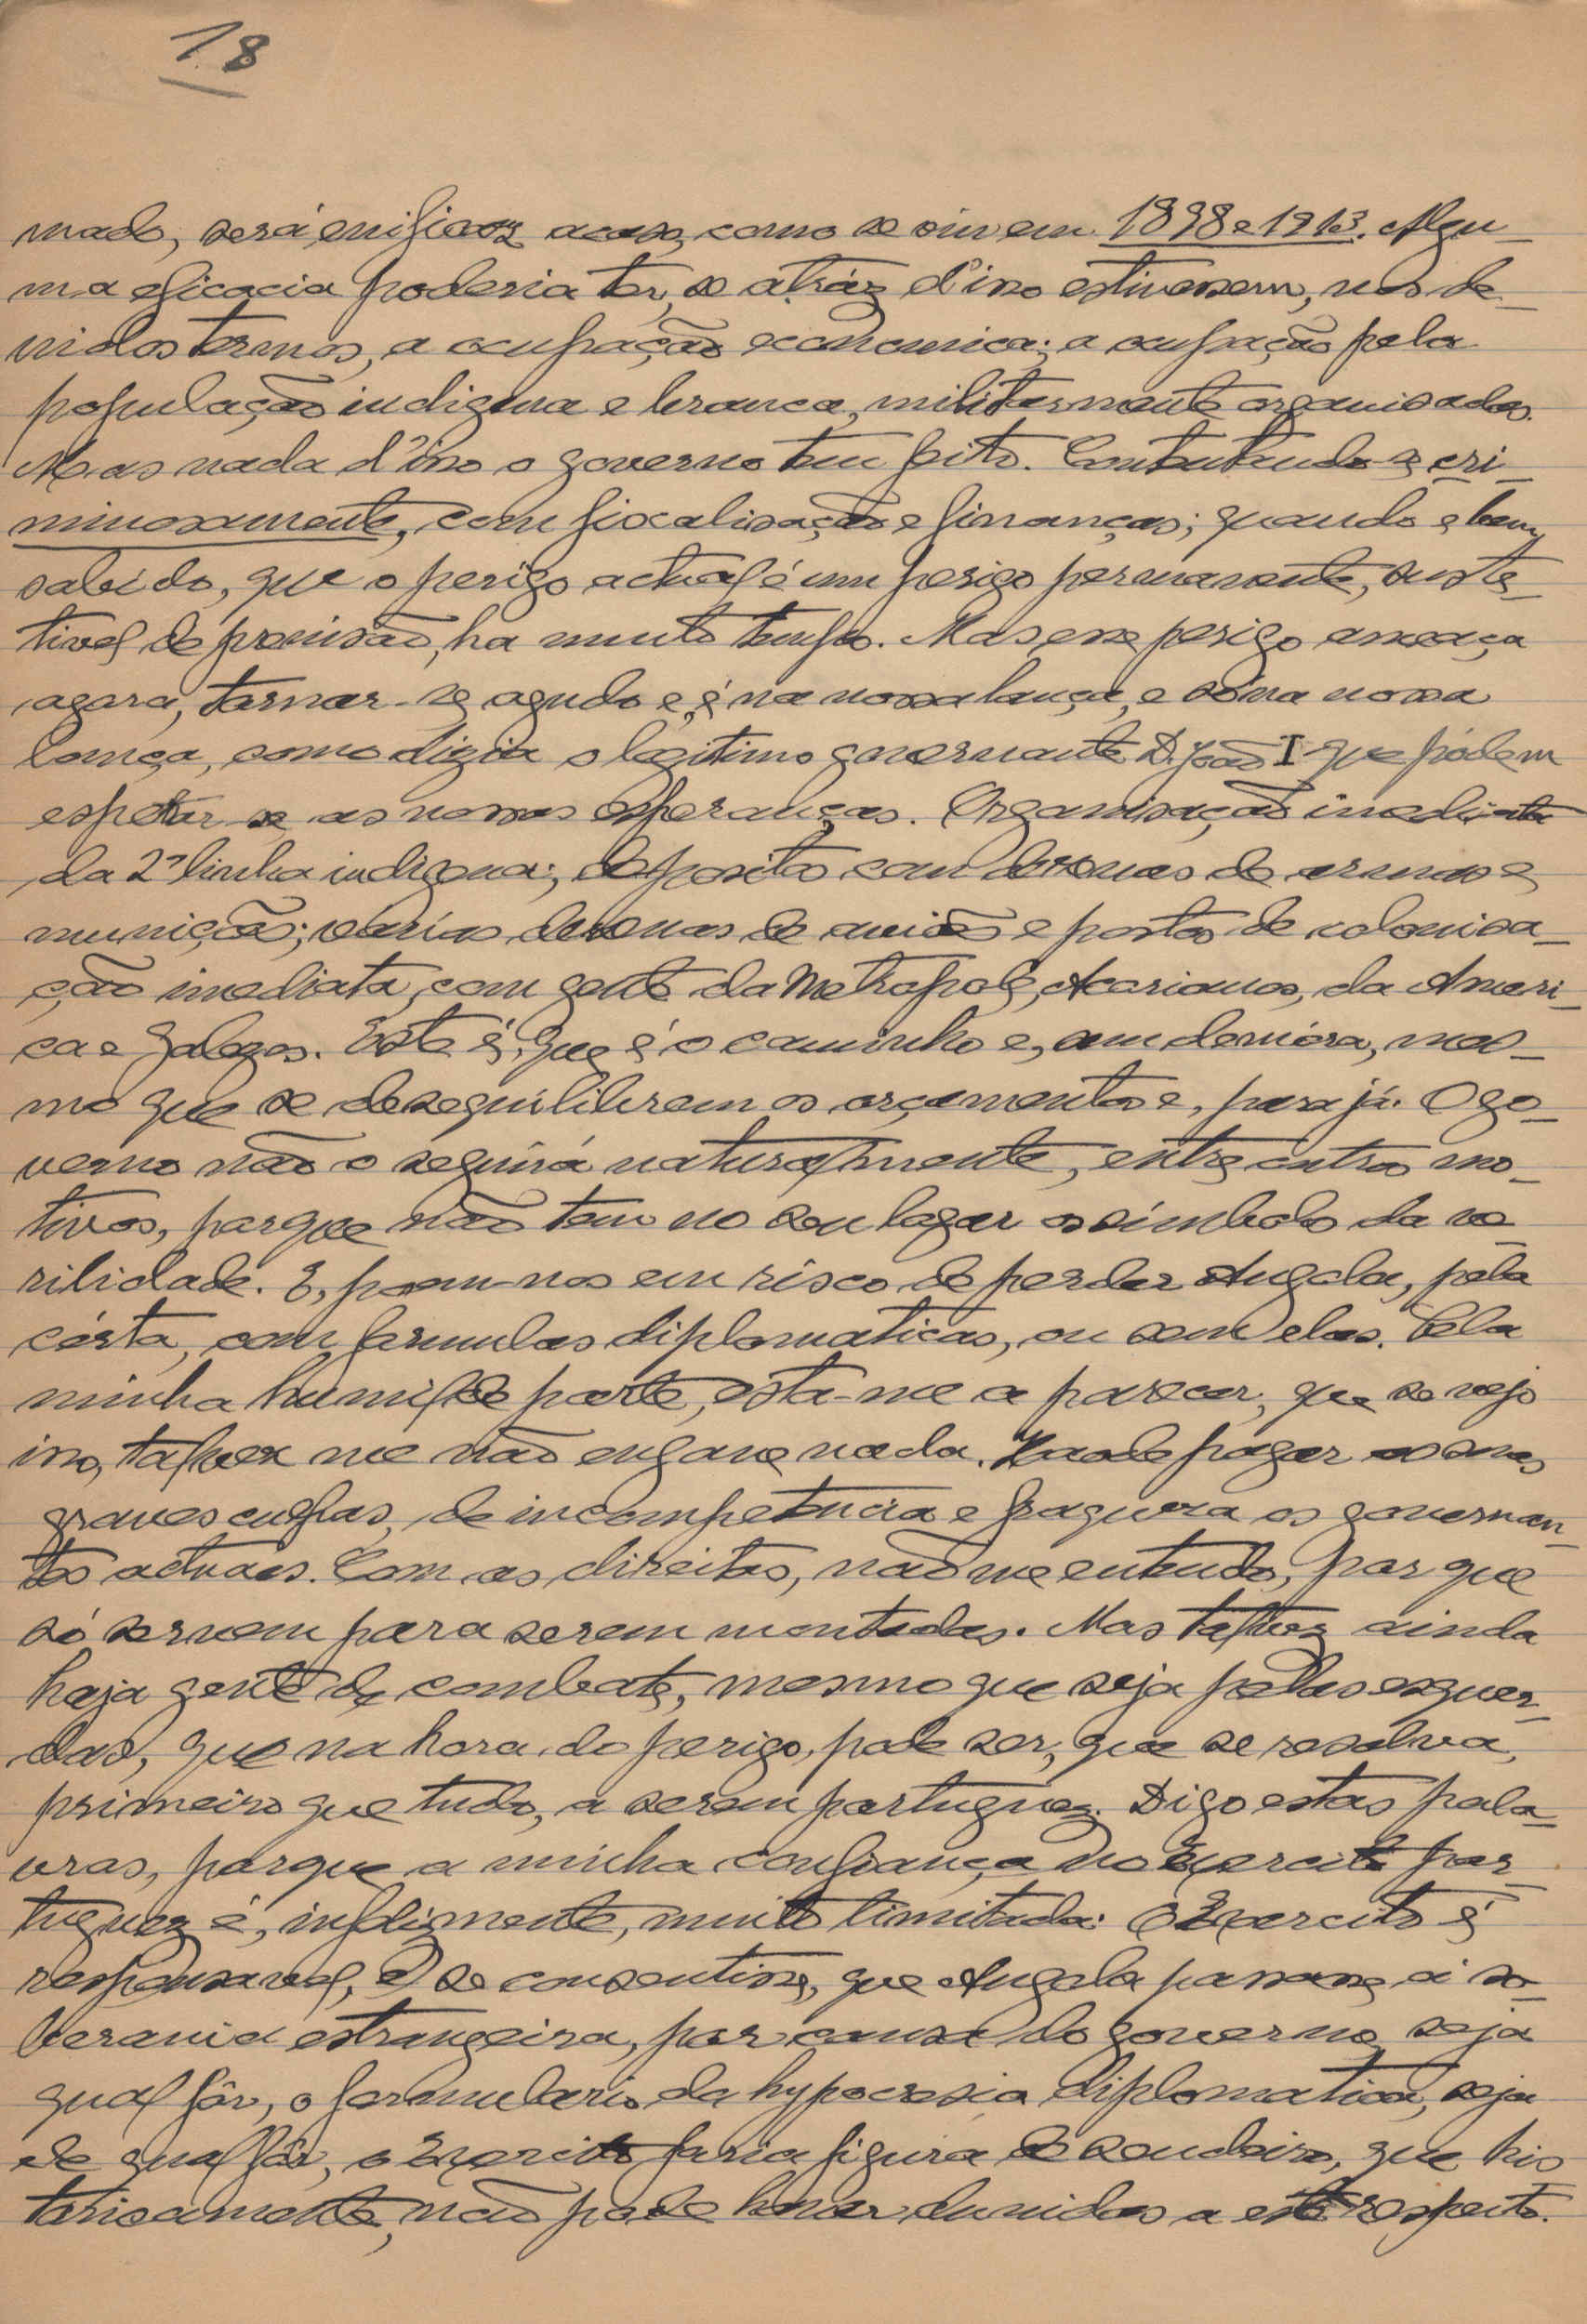 18
mado, será enificaz acaso, como se viu em 1898 e 1913. Algu-
ma eficacia poderia ter, se atráz d'isso estivessem, nos de-
vidos termos, a ocupação economica; a ocupação pela
população indigena e branca, militarmente organisadas.
Mas nada d'isso o governo tem feito. Contentando-se cri-
minosamente, com fiscalisação e finanças; quando é bem
sabido, que o perigo actual é um perigo permanente, susce-
tivel de previsão, ha muito tempo. Mas esse perigo ameaça
agora, tornar-se agudo e é na nossa lança, e só na nossa
lança, como dizia o legitimo governante D. João I que pódem
espetar se as nossas esperanças. Organisação imediata
da 2ª linha indigena; deposito com dezenas de armas e
munição; várias dezenas de aviões e postos de colonisa-
ção imediata, com gente da Metropole, Acorianos, da Ameri-
ca e Galegos. Este é, que é o caminho e, sem demóra, mes-
mo que se desequilibrem os orçamentos e, para já. O go-
verno não o seguirá naturalmente, entre outros mo-
tivos, porque não tem no seu logar os simbolo da vi-
rilidade. E, poem-nos em risco de perder Angola, pela
cérta, com formulas diplomaticas, ou sem elas. Pela
minha humilde parte, está-me a parecer, que se vejo
isso, talvez me não engane nada. Hãode pagar as suas
graves culpas, de incompetencia e fraqueza os governan-
tes actuaes. Com as direitas, não me entendo, por que
só servem para serem montadas. Mas talvez ainda
haja gente de combate, mesmo que seja pelas esquer-
das, que na hora do perigo, pode ser, que se resolva,
primeiro que tudo, a serem portuguez. Digo estas pala-
vras, porque a minha confiança no Exercito por-
tuguez é, infelizmente, muito limitada: O Exercito é
responsavel, e se consentisse, que Angola passasse á so-
berania estrangeira, por causa do governo, seja
qual fôr, o formulario da hypocresia diplomatica, seja
de qual fôr, o Exercito faria figura de sendeiro, que his
toricamente, não pode haver duvidas a este respeito.